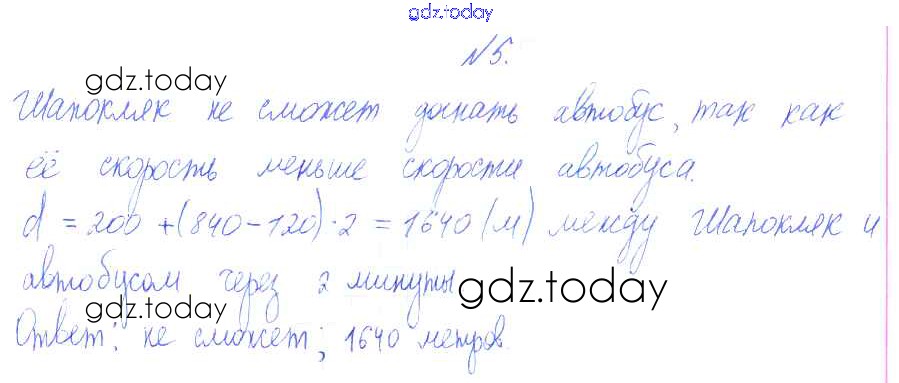 gdz.today
№5.
gdz.today
Шапокляк не сможет догнать автобус, так как
её скорость меньше скорости автобуса.
d = 200 + (840 - 120) · 2 = 1640 (м) между Шапокляк и
автобусом через 2 минуты
gdz.today
gdz.today
Ответ: не сможет; 1640 метров.